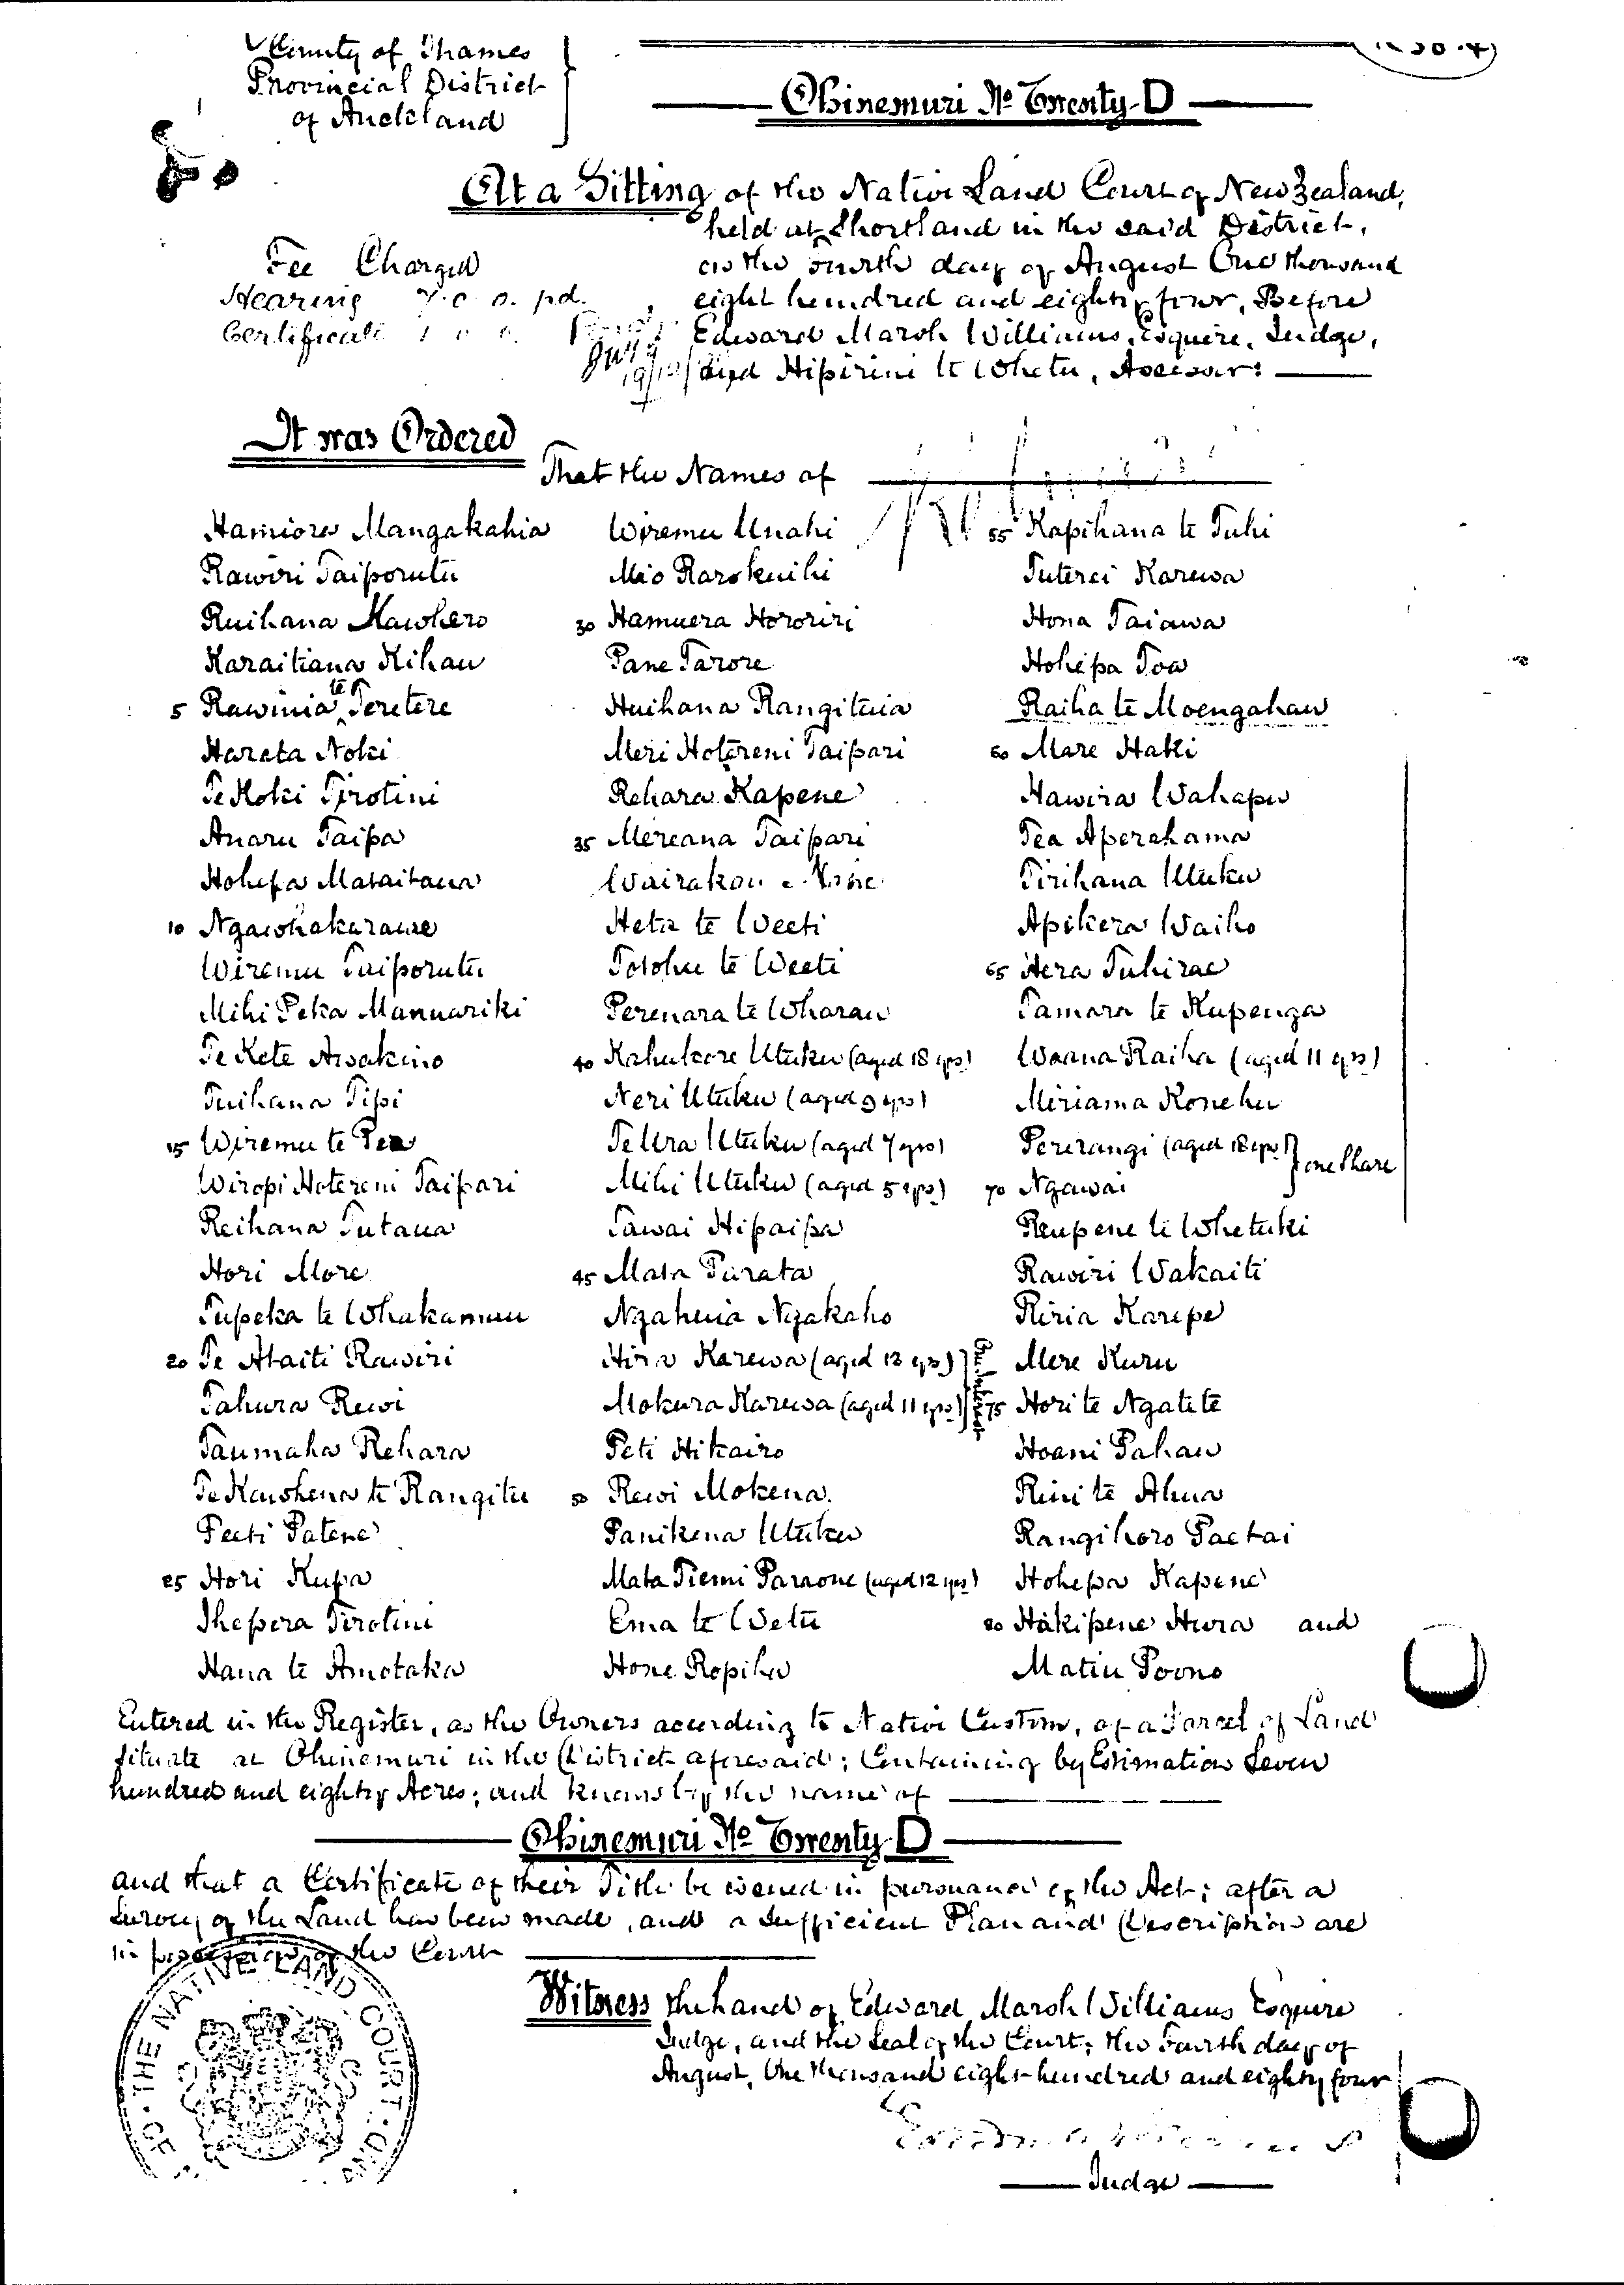 County of Thames
Provincial District
of Auckland
Ohinemuri No Twenty D
At a Sitting of the Native Land Court of New Zealand,
held at Shortland in the said District,
on the Fourth day of August One thousand
eight hundred and eighty four, Before
Edward Marsh Williams, Esquire, Judge,
and Hipirini te Whetu, Assessor:
Fee Charged
Hearing 7. 0. 0. pd.
Certificate 1 0 0.
It was Ordered
That the Names of
Hamiora Mangakahia
Rawiri Taiporutu
Ruihana Kawhero
Karaitiana Kihau
5 Rawinia te Teretere
Harata Noki
Te Koki Tirotini
Anaru Taipa
Hohepa Mataitaua
10 Ngawhakarawe
Wiremu Taiporutu
Mihi Peka Manuariki
Te Kete Awakino
Tuihana Tipi
15 Wiremu te Pea
Wiropi Hotereni Taipari
Reihana Tutaua
Hori More
Tupeka te Whakamau
20 Te Ataiti Rawiri
Tahura Rewi
Taumaha Rehara
Te Kawhena te Rangitu
Peeti Patene
25 Hori Kupa
Ihepera Tirotini
Hana te Amotaka
Wiremu Unahi
Mio Rarokuihi
30 Hamuera Hororiri
Pane Tarore
Huihana Rangituia
Meri Hotereni Taipari
Rehara Kapene
35 Mereana Taipari
Heta te Weeti
Totohu te Weeti
Perenara te Wharau
40 Kahukore Utuku (aged 18 yrs)
Neri Utuku (aged 9 yrs)
Te Ura Utuku (aged 7 yrs)
Mihi Utuku (aged 5 yrs)
Tawai Hipaipa
45 Mata Purata
Ngahuia Ngakaho
Hira Karewa (aged 13 yrs)
Mokura Karewa (aged 11 yrs)
Peti Hikairo
50 Rewi Mokena.
Panikena Utuku
Mata Tiemi Paraone (aged 12 yrs)
Ema te Wetu
Hone Ropiha
55 Kapihana te Tuhi
Tuterei Karewa
Hona Taiawa
Hohepa Toa
Raiha te Moengahau
60 Mare Haki
Hawira Wahapu
Pea Aperahama
Tirihana Utuku
Apikera Waiho
65 Hera Tuhirae
Tamara te Kupenga
Waana Raiha (aged 11 yrs)
Miriama Konehu
Pererangi (aged 18 yrs)
one Share
70 Ngawai
Reupene te Whetuki
Rawiri Wakaiti
Riria Karepe
Mere Kuru
75 Hori te Ngatete
Hoani Pahau
Rini te Ahua
Rangihoro Paetai
Hohepa Kapene
80 Hakipene Hura and
Matiu Poono
Entered in the Register, as the Owners according to Native Custom, of a Parcel of Land
situate at Ohinemuri in the District aforesaid; Containing by Estimation Seven
hundred and eighty Acres; and known by the name of
Ohinemuri No Twenty D
and that a Certificate of their Title be issued in pursuance of the Act; after a
Survey of the Land has been made, and a Sufficient Plan and Description are
in possession of the Court
Witness the hand of Edward Marsh Williams Esquire
Judge, and the Seal of the Court; the Fourth day of
August, One thousand eight hundred and eighty four
Judge
OF THE NATIVE LAND COURT